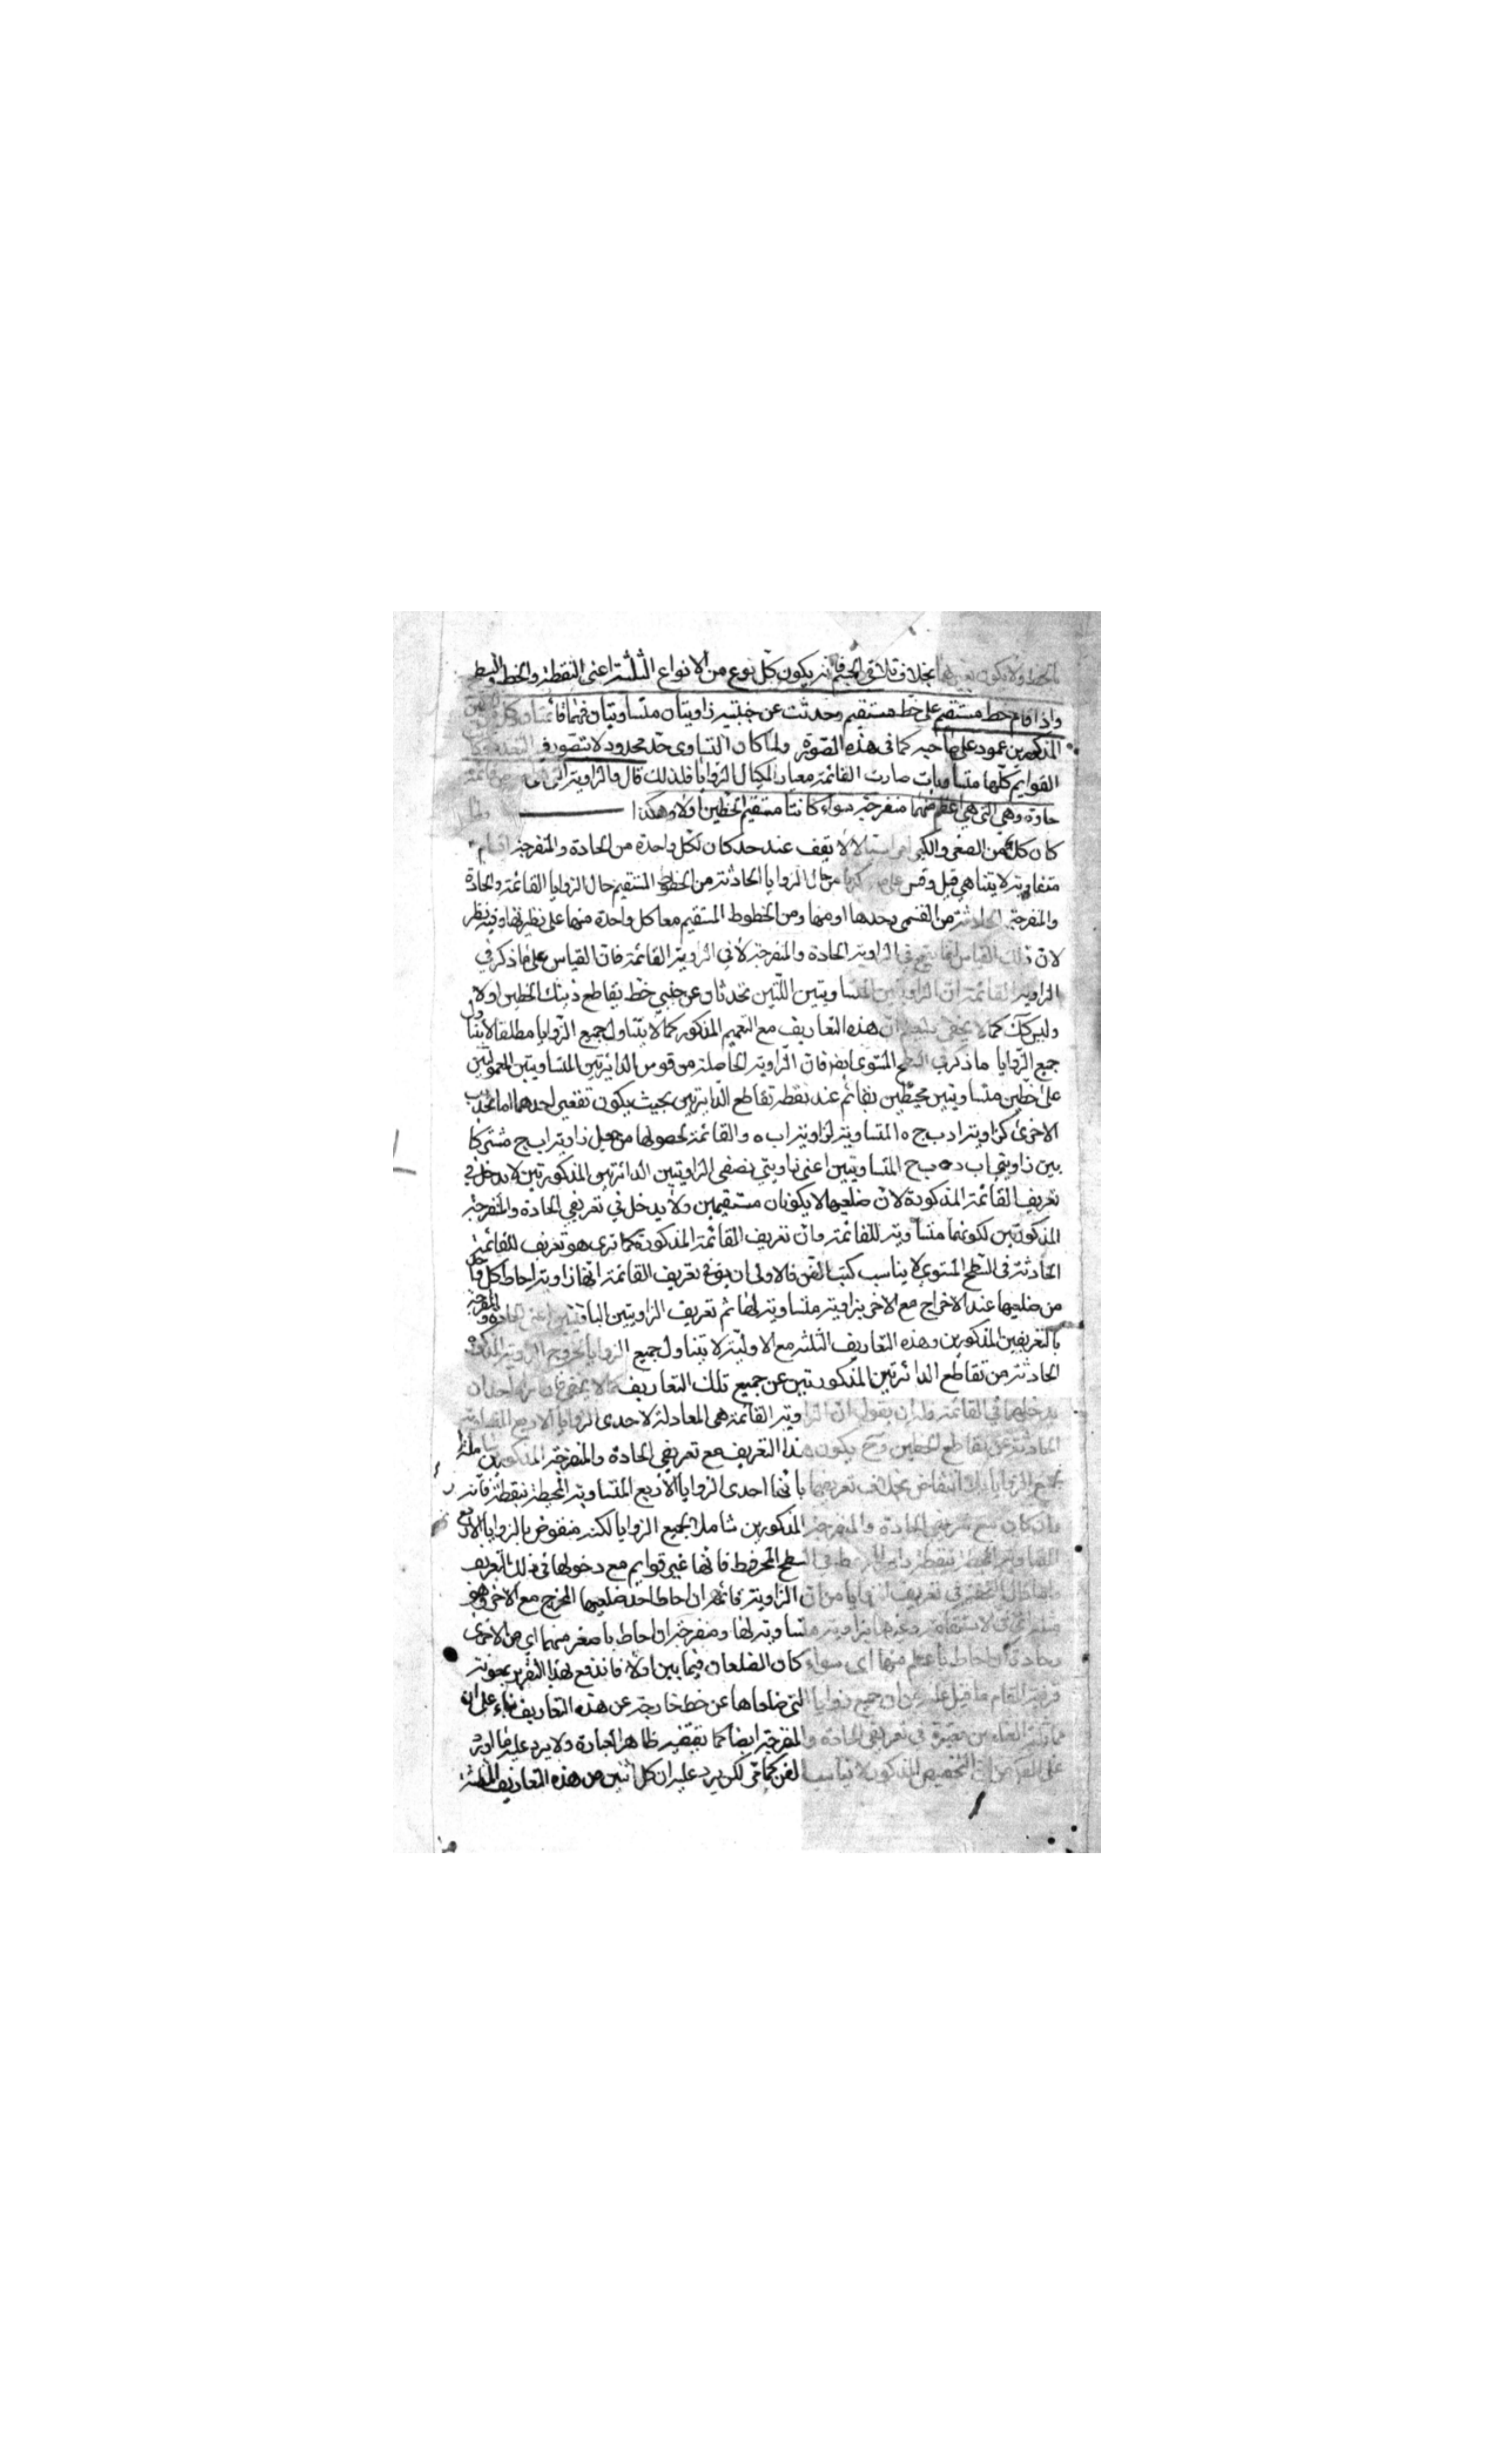 بخلاف تلاقي الجسم فانه يكون كل نوع من الانواع الثلثة اعنى النقطة والخط والبسيط
واذا قام خط مستقيم على خط مستقيم وحدثت عن جنبتيه زاويتان متساويتان فهما قائمتان وكل
المذكورين عمود على صاحبه كما في هذه الصورة ولما كان التساوى حد محدود لا تتصور فيه
القوايم كلها متساويات صارت القائمة معيار المكيال الزوايا فلذلك قال والزاوية التى
حادة وهي التى هي اعظم منهما منفرجة سواء كانتا مستقيم الخطين اولا وهكذا
كان كل من الصغر والكبر لا يقف عند حد كان لكل واحدة من الحادة والمنفرجة اقسام
متفاوتة لا يتناهى قيل وقس على من حال الزوايا الحادثة من الخطوط المستقيم حال الزوايا القائمة والحادة
والمنفرجة الحادثة من القسى وحدها او منها ومن الخطوط المستقيم معا كل واحدة منها على نظيرتها وفيه نظر
لان ذلك القياس انما يتم في الزاوية الحادة والمنفرجة لا في الزاوية القائمة فان القياس على ما ذكر في
الزاوية القائمة ان الزاويتين المتساويتين اللتين تحدثان عن جنبي خط يقاطع ذينك الخطين اولا
وليس كك كما لا يخفى ان هذه التعاريف مع التعميم المذكور كما لا يتناول جميع الزوايا مطلقا لا يتناول
جميع الزوايا ما ذكر في السطح المستوى ايضا فان الزاوية الحاصلة من قوس الدائرتين المتساويتين المعمولتين
على خطين متساويين محيطين بقائم عند نقطة تقاطع الدايرتين بحيث يكون تقعير احدهما لما تحدب
الاخرى كزاوية ا د ب ج ه المتساوية لزاوية ا ب ه والقائمة لحصولها من جعل زاوية ا ب ج مشتركا
بين زاويتى ا ب د ه ب ح المتساويتين اعنى زاويتي نصفى الزاويتين الدائرتين المذكورتين لا يدخل في
تعريف القائمة المذكورة لان ضلعيها لا يكونان مستقيمين ولا يدخل في تعريفي الحادة والمنفرجة
المذكورتين لكونها متساوية للقائمة وان تعريف القائمة المذكورة كما ترى هو تعريف للقائمة
الحادثة في السطح المستوى لا يناسب كتب الفن فالاولى ان يق في تعريف القائمة انها زاوية احاط كل واحد
من ضلعيها عند الاخراج مع الاخر بزاوية متساوية لها ثم تعريف الزاويتين الباقيتين اعنى الحادة والمنفرجة
بالتعريفين المذكورين وهذه التعاريف الثلثة مع الاولية لا يتناول جميع الزوايا لخروج الزاوية المذكورة
الحادثة من تقاطع الدائرتين المذكورتين عن جميع تلك التعاريف كما لا يخفى
يدخلهما في القائمة وله ان يقول ان الزاوية القائمة هى المعادلة لاحدى الزوايا الاربع المتساوية
الحادثة عن تقاطع الخطين وح يكون هذا التعريف مع تعريفي الحادة والمنفرجة المذكورين
جميع الزوايا بلا انتقاض بخلاف تعريفها بانها احدى الزوايا الاربع المتساوية المحيطة بنقطة فانه
وان كان مع تعريفي الحادة والمنفرجة المذكورين شاملا لجميع الزوايا لكنه منقوض بالزوايا الاربع
المتساوية المحيطة بنقطة السطح المخروط فانها غير قوايم مع دخولها في ذلك التعريف
في تعريف الزوايا من ان الزاوية قائمة ان احاط احد ضلعيها المخرج مع الاخر
بزاوية متساوية لها ومنفرجة ان احاط باصغر منهما اى من الاخرى
وحادة ان احاط باعظم منها اى سواء كان الضلعان فيما بين اولا فاندفع بهذا التقرير بمعونة
قرينة المقام ما قيل عليه من ان جميع زوايا التى ضلعاها عن خط خارجة عن هذه التعاريف بناء على ان
في تعريفى الحادة والمنفرجة ايضا كما يقتضيه ظاهر العبارة ولا يرد عليه ما اورد
على المص من ان التخصيص المذكور لا يناسب الفن كما مر لكن يرد عليه ان كل اثنين من هذه التعاريف الثلثة